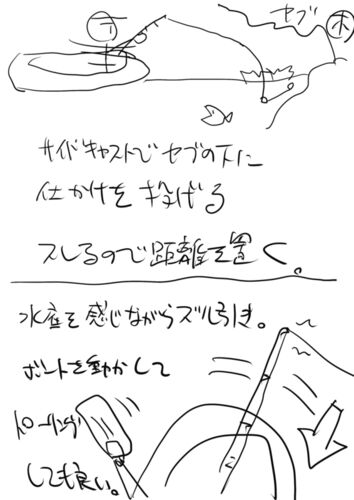 セブ ホ
サイドキャストでセブの下に
仕かけを投げる
スレるので距離を置く。
水底を感じながらズル引き。
ボートを動かして
しても良い。